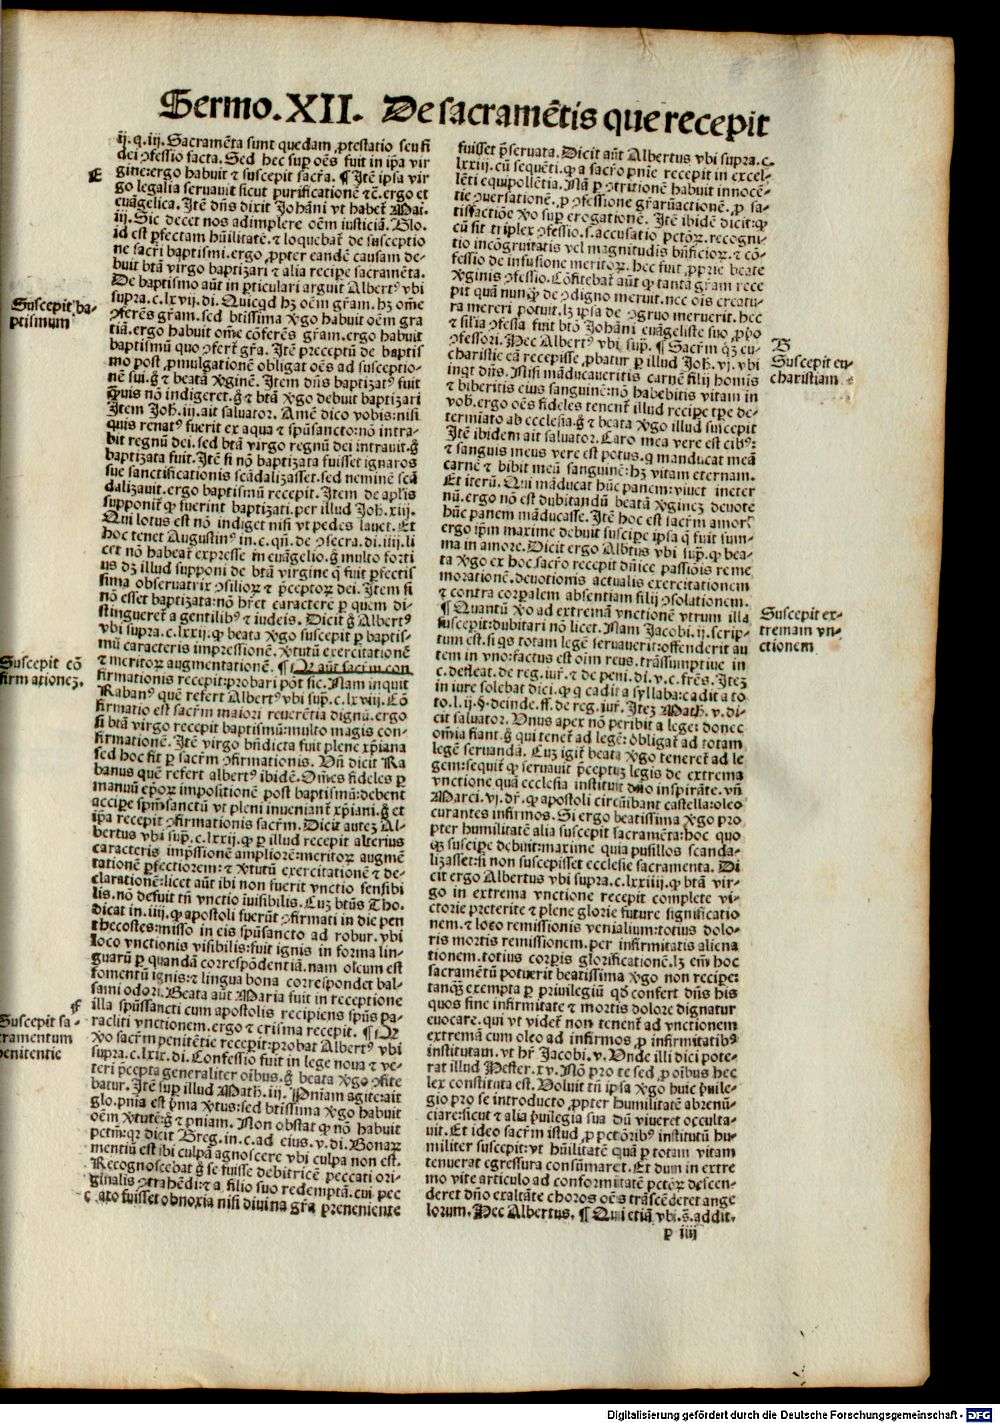 Sermo.XII. De sacramẽtis que recepit
ij.q.iij. Sacramẽta sunt quedam ꝓtestatio seu fi
dei ꝯfessio facta. Sed hec suꝑ oẽs fuit in ip̃a vir
gine:ergo habuit ⁊ suscepit sacr̃a. ¶ Itẽ ipsa vir
go legalia seruauit sicut purificationẽ ⁊c̃. ergo et
euãgelica. Itẽ dñs dixit Johãni vt habet᷑ Mat.
iij. Sic decet nos adimplere oẽm iusticiã. Glo.
id est ꝑfectam hũilitatẽ. ⁊ loquebat᷑ de susceptio
ne sacr̃i baptismi. ergo ꝓpter eandẽ causam de-
buit btã virgo baptizari ⁊ alia recipe sacramẽta.
De baptismo aũt in ꝑticulari arguit Albertꝰ vbi
supra.c.lxvij.di. Quicqd hȝ oẽm gr̃am. hȝ om̃e
ꝯferẽs gr̃am. sed btissima Ꝟgo habuit oẽm gra
tiã. ergo habuit om̃e cõferẽs gr̃am. ergo habuit
baptismũ quo ꝯfert᷑ gr̃a. Itẽ preceptũ de baptis
mo post ꝓmulgationẽ obligat oẽs ad susceptio-
nẽ sui.g̊ ⁊ beatã Ꝟginẽ. Item dñs baptizatꝰ fuit
q̃uis nõ indigeret.g̊ ⁊ btã Ꝟgo debuit baptizari
Item Joh̃.iij.ait saluator. Amẽ dico vobis:nisi
quis renatꝰ fuerit ex aqua ⁊ sp̃usancto:nõ intra-
bit regnũ dei. sed btã virgo regnũ dei intrauit.g̊
baptizata fuit. Itẽ si nõ baptizata fuisset ignaros
sue sanctificationis scãdalizasset. sed neminẽ scã
dalizauit. ergo baptismũ recepit. Item de ap̃lis
supponit᷑ ꝙ fuerint baptizati. per illud Joh̃.xiij.
Qui lotus est nõ indiget nisi vt pedes lauet. Et
hoc tenet Augustinꝰ in.c.qñ. de ꝯsecra.di.iiij.li
cet nõ habeat᷑ expresse in euãgelio.g̊ multo forti
us dȝ illud supponi de btã virgine q̃ fuit ꝑfectis
sima obseruatrix ꝯsilioꝝ ⁊ p̃ceptoꝝ dei. Itẽ si
nõ esset baptizata:nõ hr̃et caracterẽ ꝑ quem di-
stingueret᷑ a gentilibꝰ ⁊ iudeis. Dicit g̊ Albertꝰ
vbi supra.c.lxxij. ꝙ beata Ꝟgo suscepit ꝑ baptis-
mũ caracteris impressionẽ. Ꝟtutũ exercitationẽ
⁊ meritoꝝ augmentationẽ. ¶ Qr̃ aũt sacr̃m con
firmationis recepit:probari põt sic. Nam inquit
Rabanꝰ quẽ refert Albertꝰ vbi sup̃.c.lxviij. Cõ
firmatio est sacr̃m maiori reuerẽtia dignũ. ergo
si btã virgo recepit baptismũ:multo magis con-
firmationẽ. Itẽ virgo bñdicta fuit plene xp̃iana
sed hoc fit ꝑ sacr̃m ꝯfirmationis. Vñ dicit Ra
banus quẽ refert albertꝰ ibidẽ. Om̃es fideles ꝑ
manuũ ep̃oꝝ impositionẽ post baptismũ:debent
accipe sp̃m sanctũ vt pleni inueniant᷑ xp̃iani.g̊ et
ip̃a recepit ꝯfirmationis sacr̃m. Dicit auteȝ Al-
bertus vbi sup̃.c.lxxij.ꝙ ꝑ illud recepit alterius
caracteris imp̃ssionẽ ampliorẽ:meritoꝝ augmẽ
tationẽ ꝑfectiorem:⁊ Ꝟtutũ exercitationẽ ⁊ de-
clarationẽ:licet aũt ibi non fuerit vnctio sensibi
lis. nõ defuit tñ vnctio ĩuisibilis. Cuȝ btũs Tho.
dicat in.iiij.ꝙ apostoli fuerũt ꝯfirmati in die pen
thecostes:misso in eis sp̃usancto ad robur. vbi
loco vnctionis visibilis:fuit ignis in forma lin-
guarũ ꝑ quandã correspõdentiã. nam oleum est
fomentũ ignis:⁊ lingua bona correspondet bal-
sami odori. Beata aũt Maria fuit in receptione
illa sp̃ussancti cum apostolis recipiens sp̃us pa-
racliti vnctionem. ergo ⁊ crisma recepit. ¶ Qr̃
Ꝟo sacr̃m penitẽtie recepit:probat Albertꝰ vbi
supra.c.lxix.di. Confessio fuit in lege noua ⁊ ve-
teri p̃cepta generaliter oĩbus.g̊ beata Ꝟgo ꝯfite
batur. Itẽ suꝑ illud Math̃.iij. Pñiam agite:ait
glo.pnia est p̃ma Ꝟtus:sed btissima Ꝟgo habuit
oẽm Ꝟtutẽ:g̊ ⁊ pniam. Non obstat ꝙ nõ habuit
pctm̃:qꝛ dicit Greg.in.c.ad eius.v.di. Bonaꝝ
mentiũ est ibi culpã agnoscere vbi culpa non est.
Recognoscebat g̊ se fuisse debitricẽ peccati ori-
ginalis ꝯtrahẽdi:⁊ a filio suo redemptã. cui pec
cato fuisset obnoxia nisi diuina gr̃a preueniente
E
Suscepit ba-
ptismum
Suscepit cõ
firmationeȝ.
F
Suscepit sa-
cramentum
penitentie
fuisset p̃seruata. Dicit aũt Albertus vbi supra.c.
lxxiij.cũ sequẽti.ꝙ a sacr̃o pnie recepit in excel-
lẽti equipollẽtia. Nã ꝑ ꝯtritionẽ habuit innocẽ-
tie ꝯuersationẽ. ꝓ ꝯfessione gr̃aruactionẽ. ꝓ sa-
tisfactiõe Ꝟo suꝑ erogationẽ. Itẽ ibidẽ dicit:ꝙ
cũ sit triplex ꝯfessio.s.accusatio pctoꝝ. recogni-
tio incõgruitatis vel magnitudis bñficioꝝ. ⁊ cõ-
fessio de infusione meritoꝝ. hec fuit ꝓprie beate
Ꝟginis ꝯfessio. Cõfitebat᷑ aũt ꝙ tantã gr̃am rece
pit quã nunꝗ̃ de ꝯdigno meruit. nec oĩs creatu-
ra mereri potuit. lȝ ipsa de ꝯgruo meruerit. hec
⁊ filia ꝯfessa fuit btõ Johãni euãgeliste suo ꝓprio
ꝯfessori. Hec Albertꝰ vbi sup̃. ¶ Sacr̃m qȝ eu-
charistie eã recepisse ꝓbatur ꝑ illud Joh̃.vj.vbi
inqt dñs. Nisi mãducaueritis carnẽ filij homis
⁊ biberitis eius sanguinẽ:nõ habebitis vitam in
vob̃.ergo oẽs fideles tenent᷑ illud recipe tp̃e de-
termiato ab ecclesia.g̊ ⁊ beata Ꝟgo illud suscepit
Itẽ ibidem ait saluator. Caro mea vere est cibꝰ:
⁊ sanguis meus vere est potus. q manducat meã
carnẽ ⁊ bibit meũ sanguinẽ:hȝ vitam eternam.
Et iterũ. Qui mãducat hũc panem:viuet ineter
nũ. ergo nõ est dubitandũ beatã Ꝟgineȝ deuote
hũc panem mãducasse. Itẽ hoc est sacr̃m amorꝭ
ergo ip̃m maxime debuit suscipe ipsa q̃ fuit sum-
ma in amore. Dicit ergo Albtũs vbi sup̃.ꝙ bea-
ta Ꝟgo ex hoc sacr̃o recepit dñice passiõis reme
morationẽ. deuotionis actualis exercitationem
⁊ contra corꝑalem absentiam filij ꝯsolationem.
¶ Quantũ Ꝟo ad extremã vnctionẽ vtrum illã
susceperit:dubitari nõ licet. Nam Jacobi.ij.scrip-
tum est. si qs totam legẽ seruauerit:offenderit au
tem in vno:factus est oĩm reus. trãssumptiue in
c.defleat. de reg.iur̃.⁊ de peni.di.v.c.fr̃es. Iteȝ
in iure solebat dici. ꝙ q cadit a syllaba:cadit a to
to.l.ij.§.deinde.ff.de reg.iur̃. Iteȝ Math̃.v.di-
cit saluator. Vnus apex nõ peribit a lege:donec
om̃ia fiant.g̊ qui tenet᷑ ad legẽ:obligat᷑ ad totam
legẽ seruandã. Cuȝ igit᷑ beata Ꝟgo teneret᷑ ad le
gem:sequit᷑ ꝙ seruauit p̃ceptuȝ legis de extrema
vnctione quã ecclesia instituit dño inspirãte. vñ
Marci.vj.dr̃.ꝙ apostoli circuĩbant castella:oleo
curantes infirmos. Si ergo beatissima Ꝟgo pro
pter humilitatẽ alia suscepit sacramẽta:hoc quo
qȝ suscipe debuit:maxime quia pusillos scanda-
lizasset:si non suscepisset ecclesie sacramenta. Di
cit ergo Albertus vbi supra.c.lxxiiij.ꝙ btã vir-
go in extrema vnctione recepit complete vi-
ctorie preterite ⁊ plene glorie future significatio
nem. ⁊ loco remissionis venialium:totius dolo-
ris mortis remissionem. per infirmitatis aliena
tionem. totius corꝑis glorificationẽ. lȝ em̃ hoc
sacramẽtũ potuerit beatissima Ꝟgo non recipe:
tanqȝ exempta ꝑ priuilegiũ qd̃ confert dñs his
quos sine infirmitate ⁊ mortis dolore dignatur
euocare. qui vt videt᷑ non tenent᷑ ad vnctionem
extremã cum oleo ad infirmos ꝓ infirmitatibꝰ
institutam. vt hr̃ Jacobi.v. Unde illi dici pote-
rat illud Hester.xv. Nõ pro te sed ꝓ oĩbus hec
lex constituta est. Voluit tñ ipsa Ꝟgo huic p̃uile-
gio pro se introducto ꝓpter humilitatẽ abrenũ-
ciare:sicut ⁊ alia p̃uilegia sua dũ viueret occulta-
uit. Et ideo sacr̃m istud ꝓ pctõribꝰ institutũ hu-
militer suscepit:vt hũilitatẽ quã ꝑ totam vitam
tenuerat egressura consũmaret. Et dum in extre
mo vite articulo ad conformitatẽ pctoꝝ descen-
deret dño exaltãte choros oẽs trãscẽderet ange
lorum. Hec Albertus. ¶ Qui etiã vbi.s̃.addit.
p iiij
B
Suscepit eu-
charistiam
Suscepit ex-
tremam vn-
ctionem
Digitalisierung gefördert durch die Deutsche Forschungsgemeinschaft - DFG